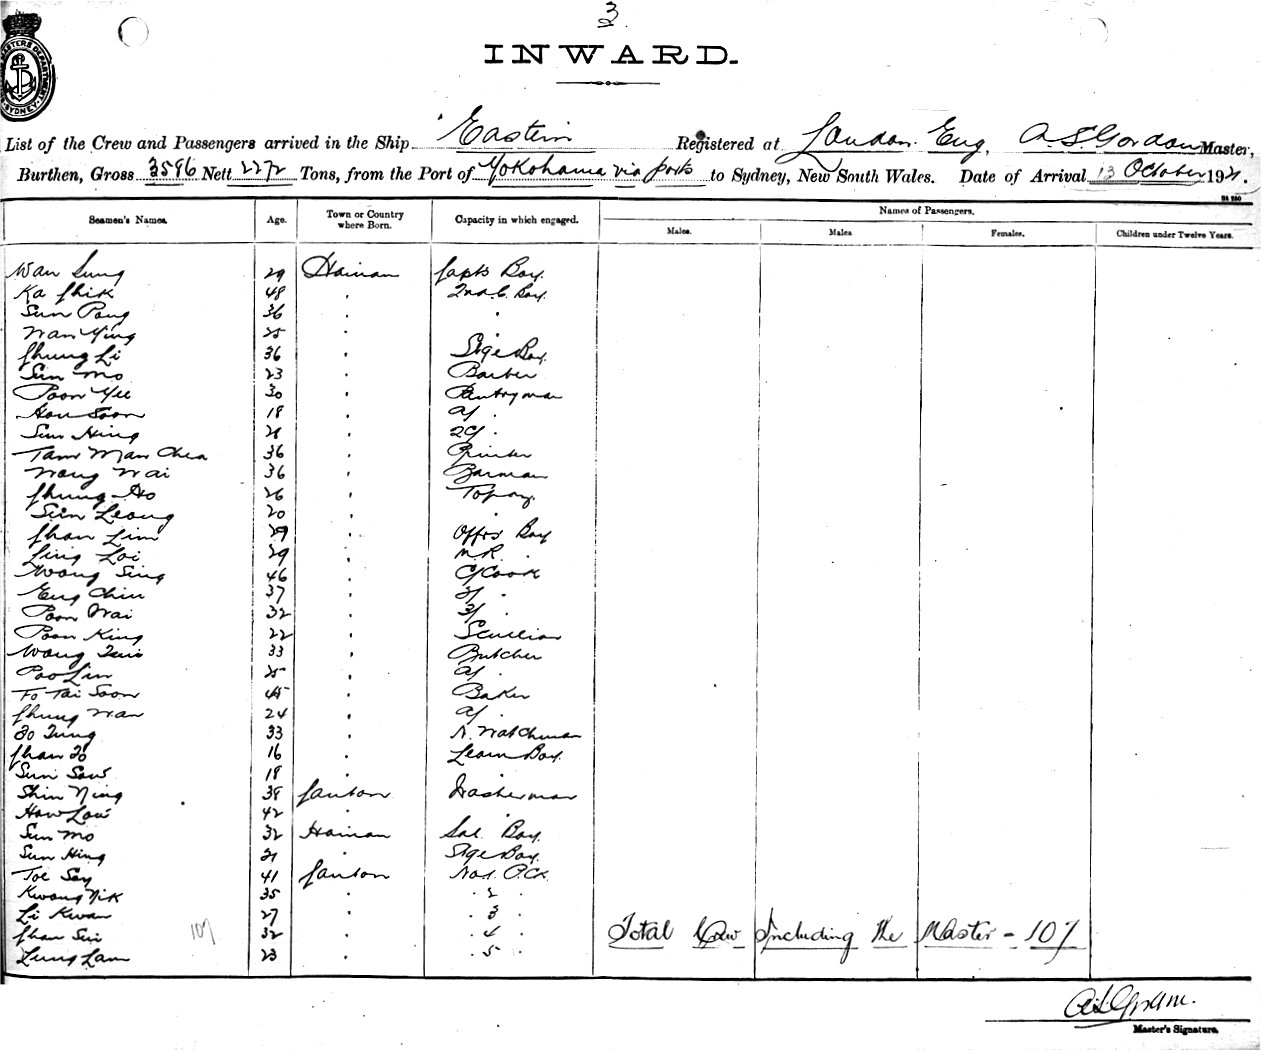 3
INWARD.
List of the Crew and Passengers arrived in the Ship Eastern Registered at London. Eng. A. S. Gordon Master,
Burthen, Gross 3596 Nett 2272 Tons, from the Port of Yokohama via ports to Sydney, New South Wales. Date of Arrival 13 October 1921.
Seamen's Names. Age. Town or Country where Born. Capacity in which engaged. Names of Passengers.
Males. Males Females. Children under Twelve Years.
Wan Sung 29 Hainan Capts Boy.
Ka Chik 48 " 2nd C. Boy.
Sun Pong 36 " "
Wan Ying 25 " "
Chung Li 36 " Stge Boy.
Sun Mo 23 " Barber
Poon Yee 30 " Pantryman
Hou Soon 18 " a/ "
Sun Hing 21 " 2d "
Tam Man Chea 36 " Printer
Wong Wai 36 " Barman
Chung Ho 26 " Topay.
Sun Leong 20 " "
Chan Lim 29 " Offrs Boy
Ling Loi 29 " M.R. "
Wong Sing 46 " C/Cook
Eng Chiu 37 " 2/ "
Poon Wai 32 " 3/ "
Poon King 22 " Scullion
Wong 33 " Butcher
Poo Lin 25 " a/ "
Fo Tai Soon 45 " Baker
Chung Wan 24 " a/ "
Fo Tung 33 " N. Watchman
Chan Fo 16 " Learn Boy.
Sun Sow 18 " "
Shin Ning 38 Canton Washerman
How Low 42 " "
Sun Mo 32 Hainan Sal. Boy.
Sun Hing 21 " Stge Boy.
Toe Sey 41 Canton No 1. P.Ck.
Kwong Yik 35 " " 2 "
Li Kwan 27 " " 3 "
Chan Sui 32 " " 4 " 107 Total Crew Including the Master - 107
Lung Lam 23 " " 5 "
Master's Signature.